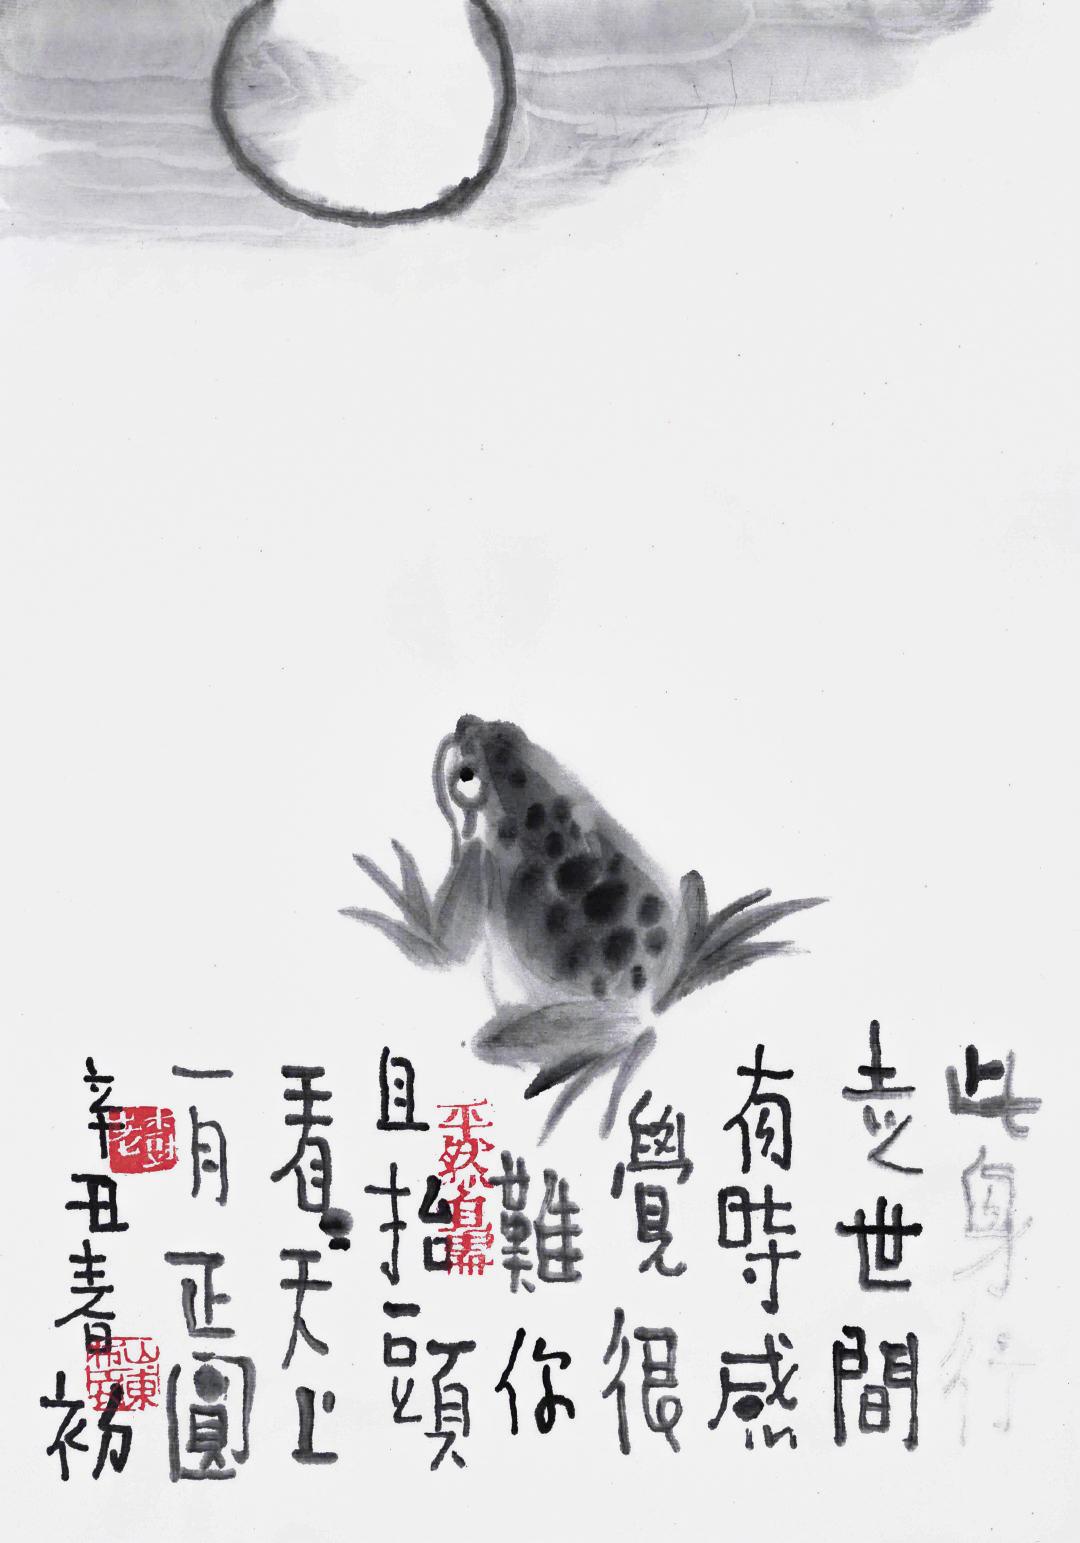 此身行
走世間
有時感
覺很
難你
且抬頭
看天上
一月正圓
辛丑春初